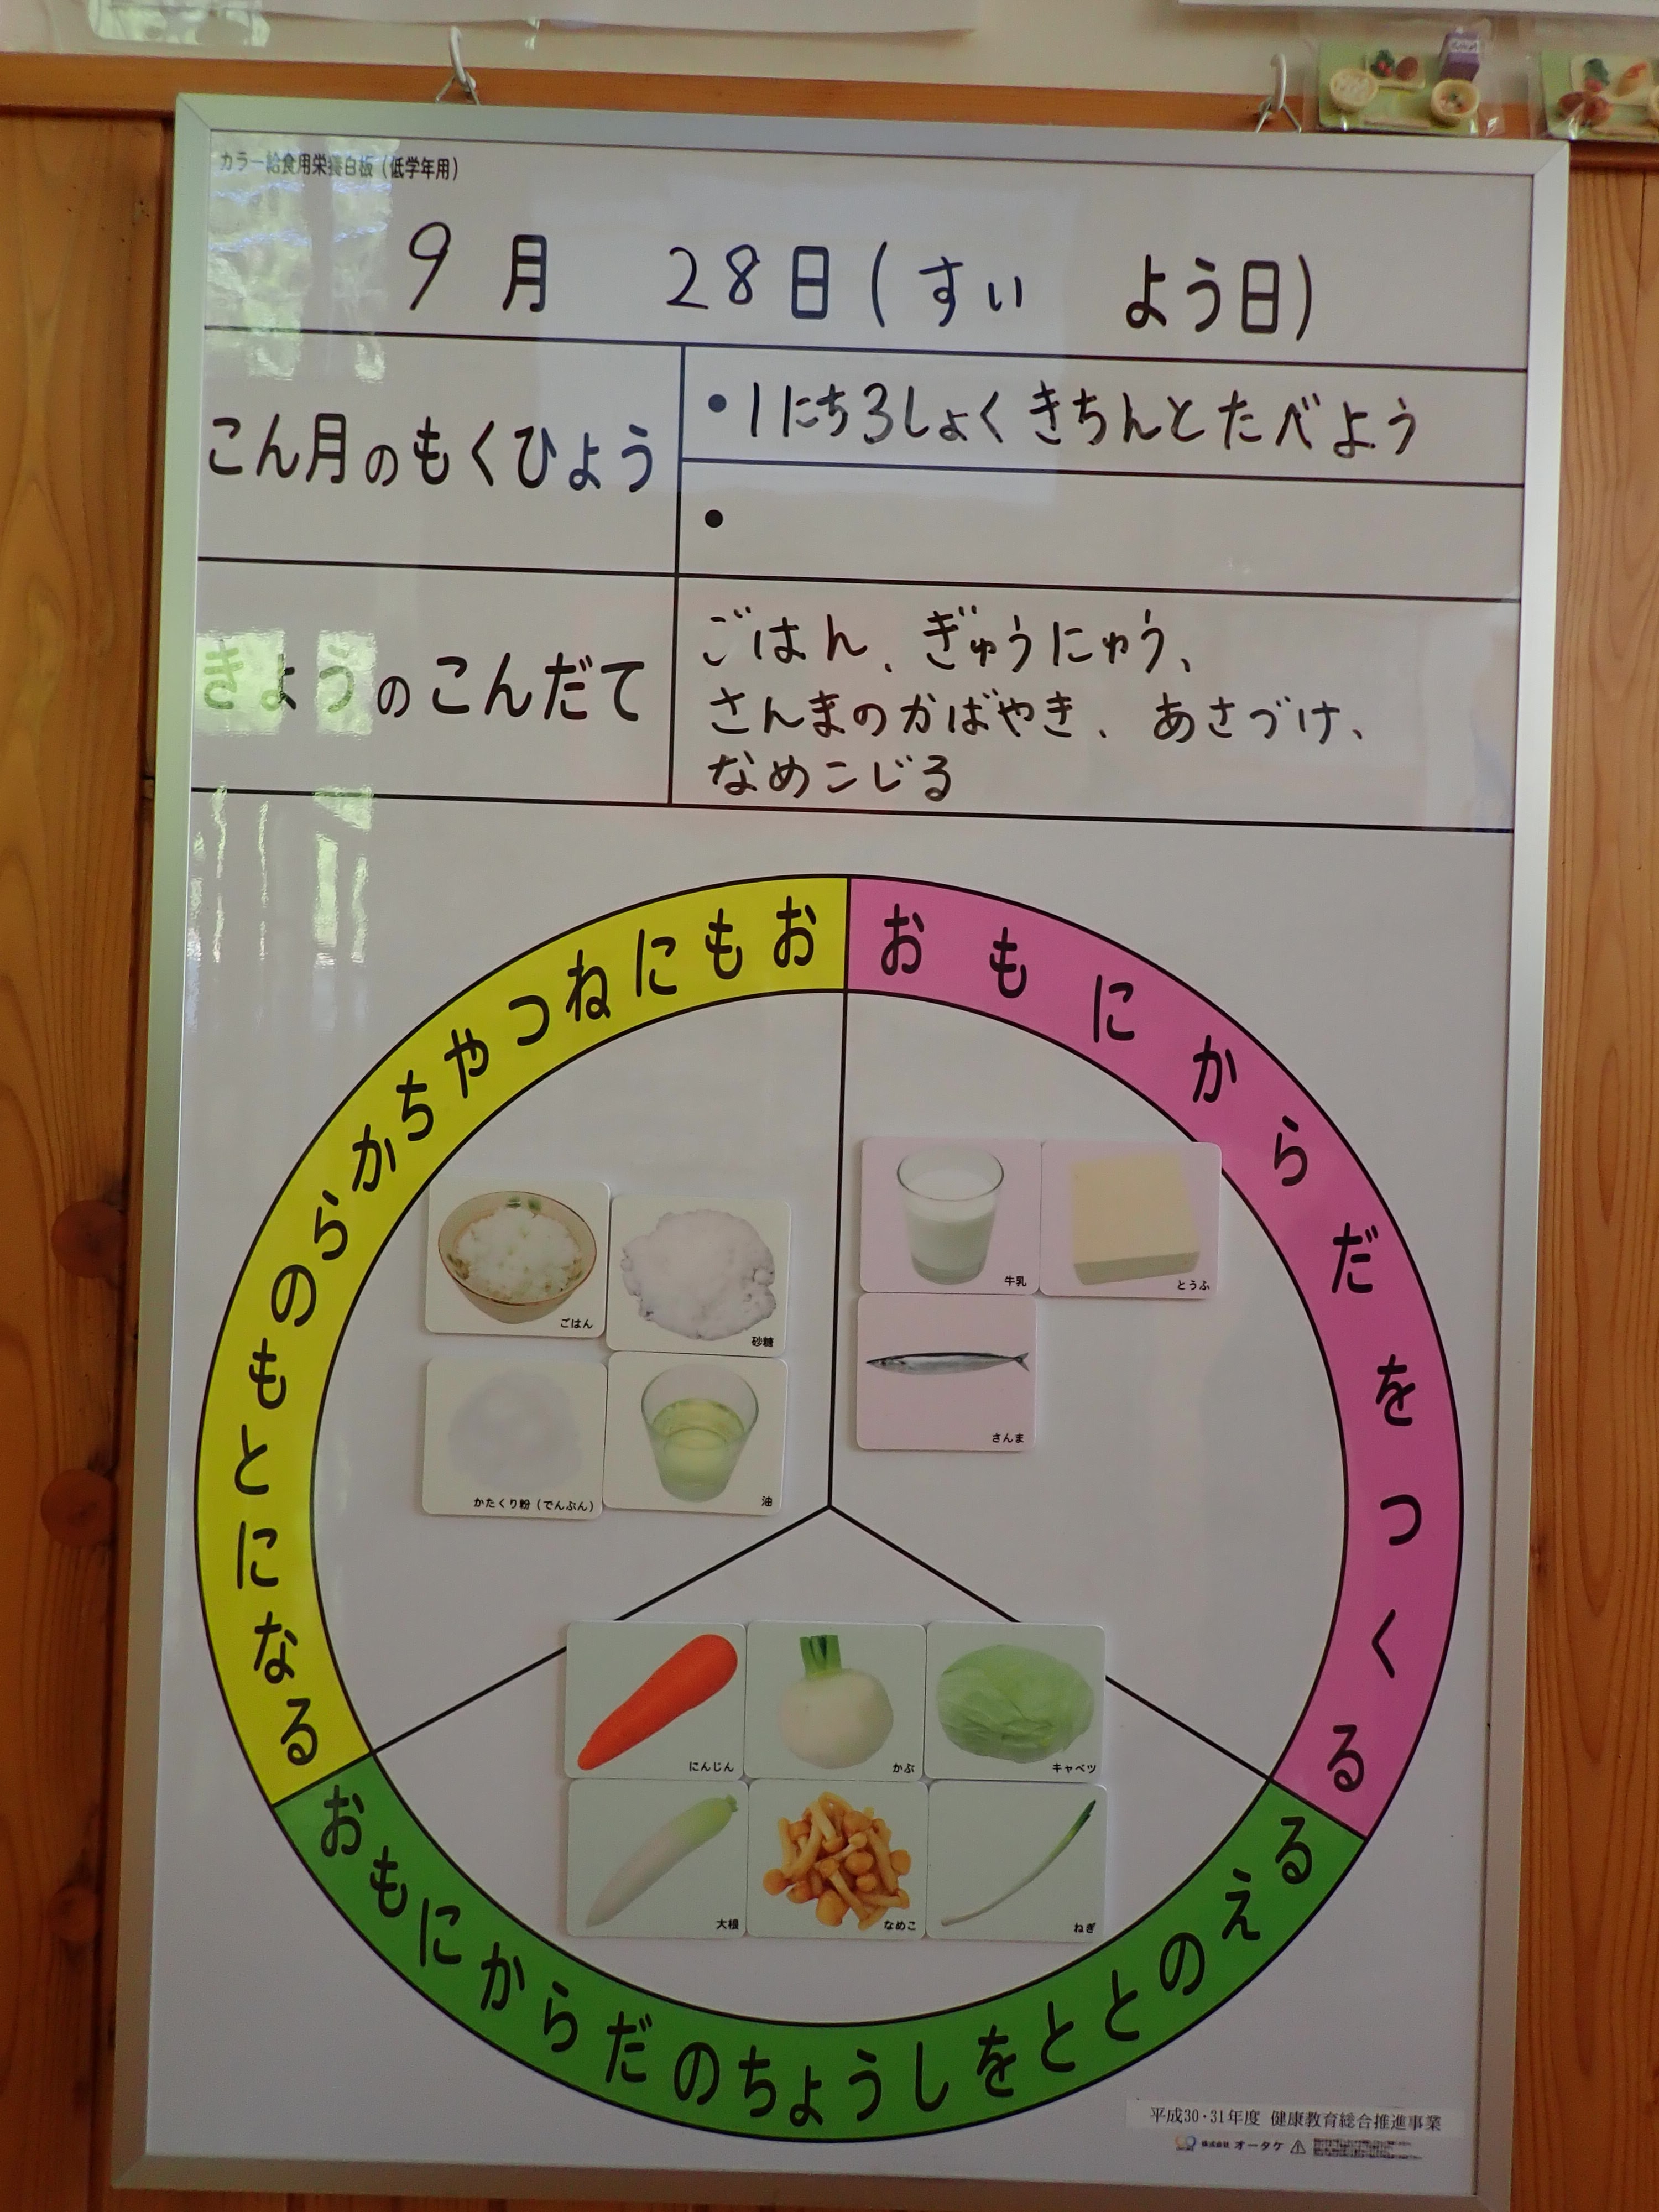 カラー給食用栄養白板（低学年用）
9月 28日(すい よう日)
こん月のもくひょう
・1にち3しょくきちんとたべよう
・
きょうのこんだて
ごはん、ぎゅうにゅう、
さんまのかばやき、あさづけ、
なめこじる
おもにねつやちからのもとになる
おもにからだをつくる
ごはん
砂糖
かたくり粉（でんぷん）
油
牛乳
とうふ
さんま
にんじん
かぶ
キャベツ
大根
なめこ
ねぎ
おもにからだのちょうしをととのえる
平成30・31年度 健康教育総合推進事業
株式会社 オータケ